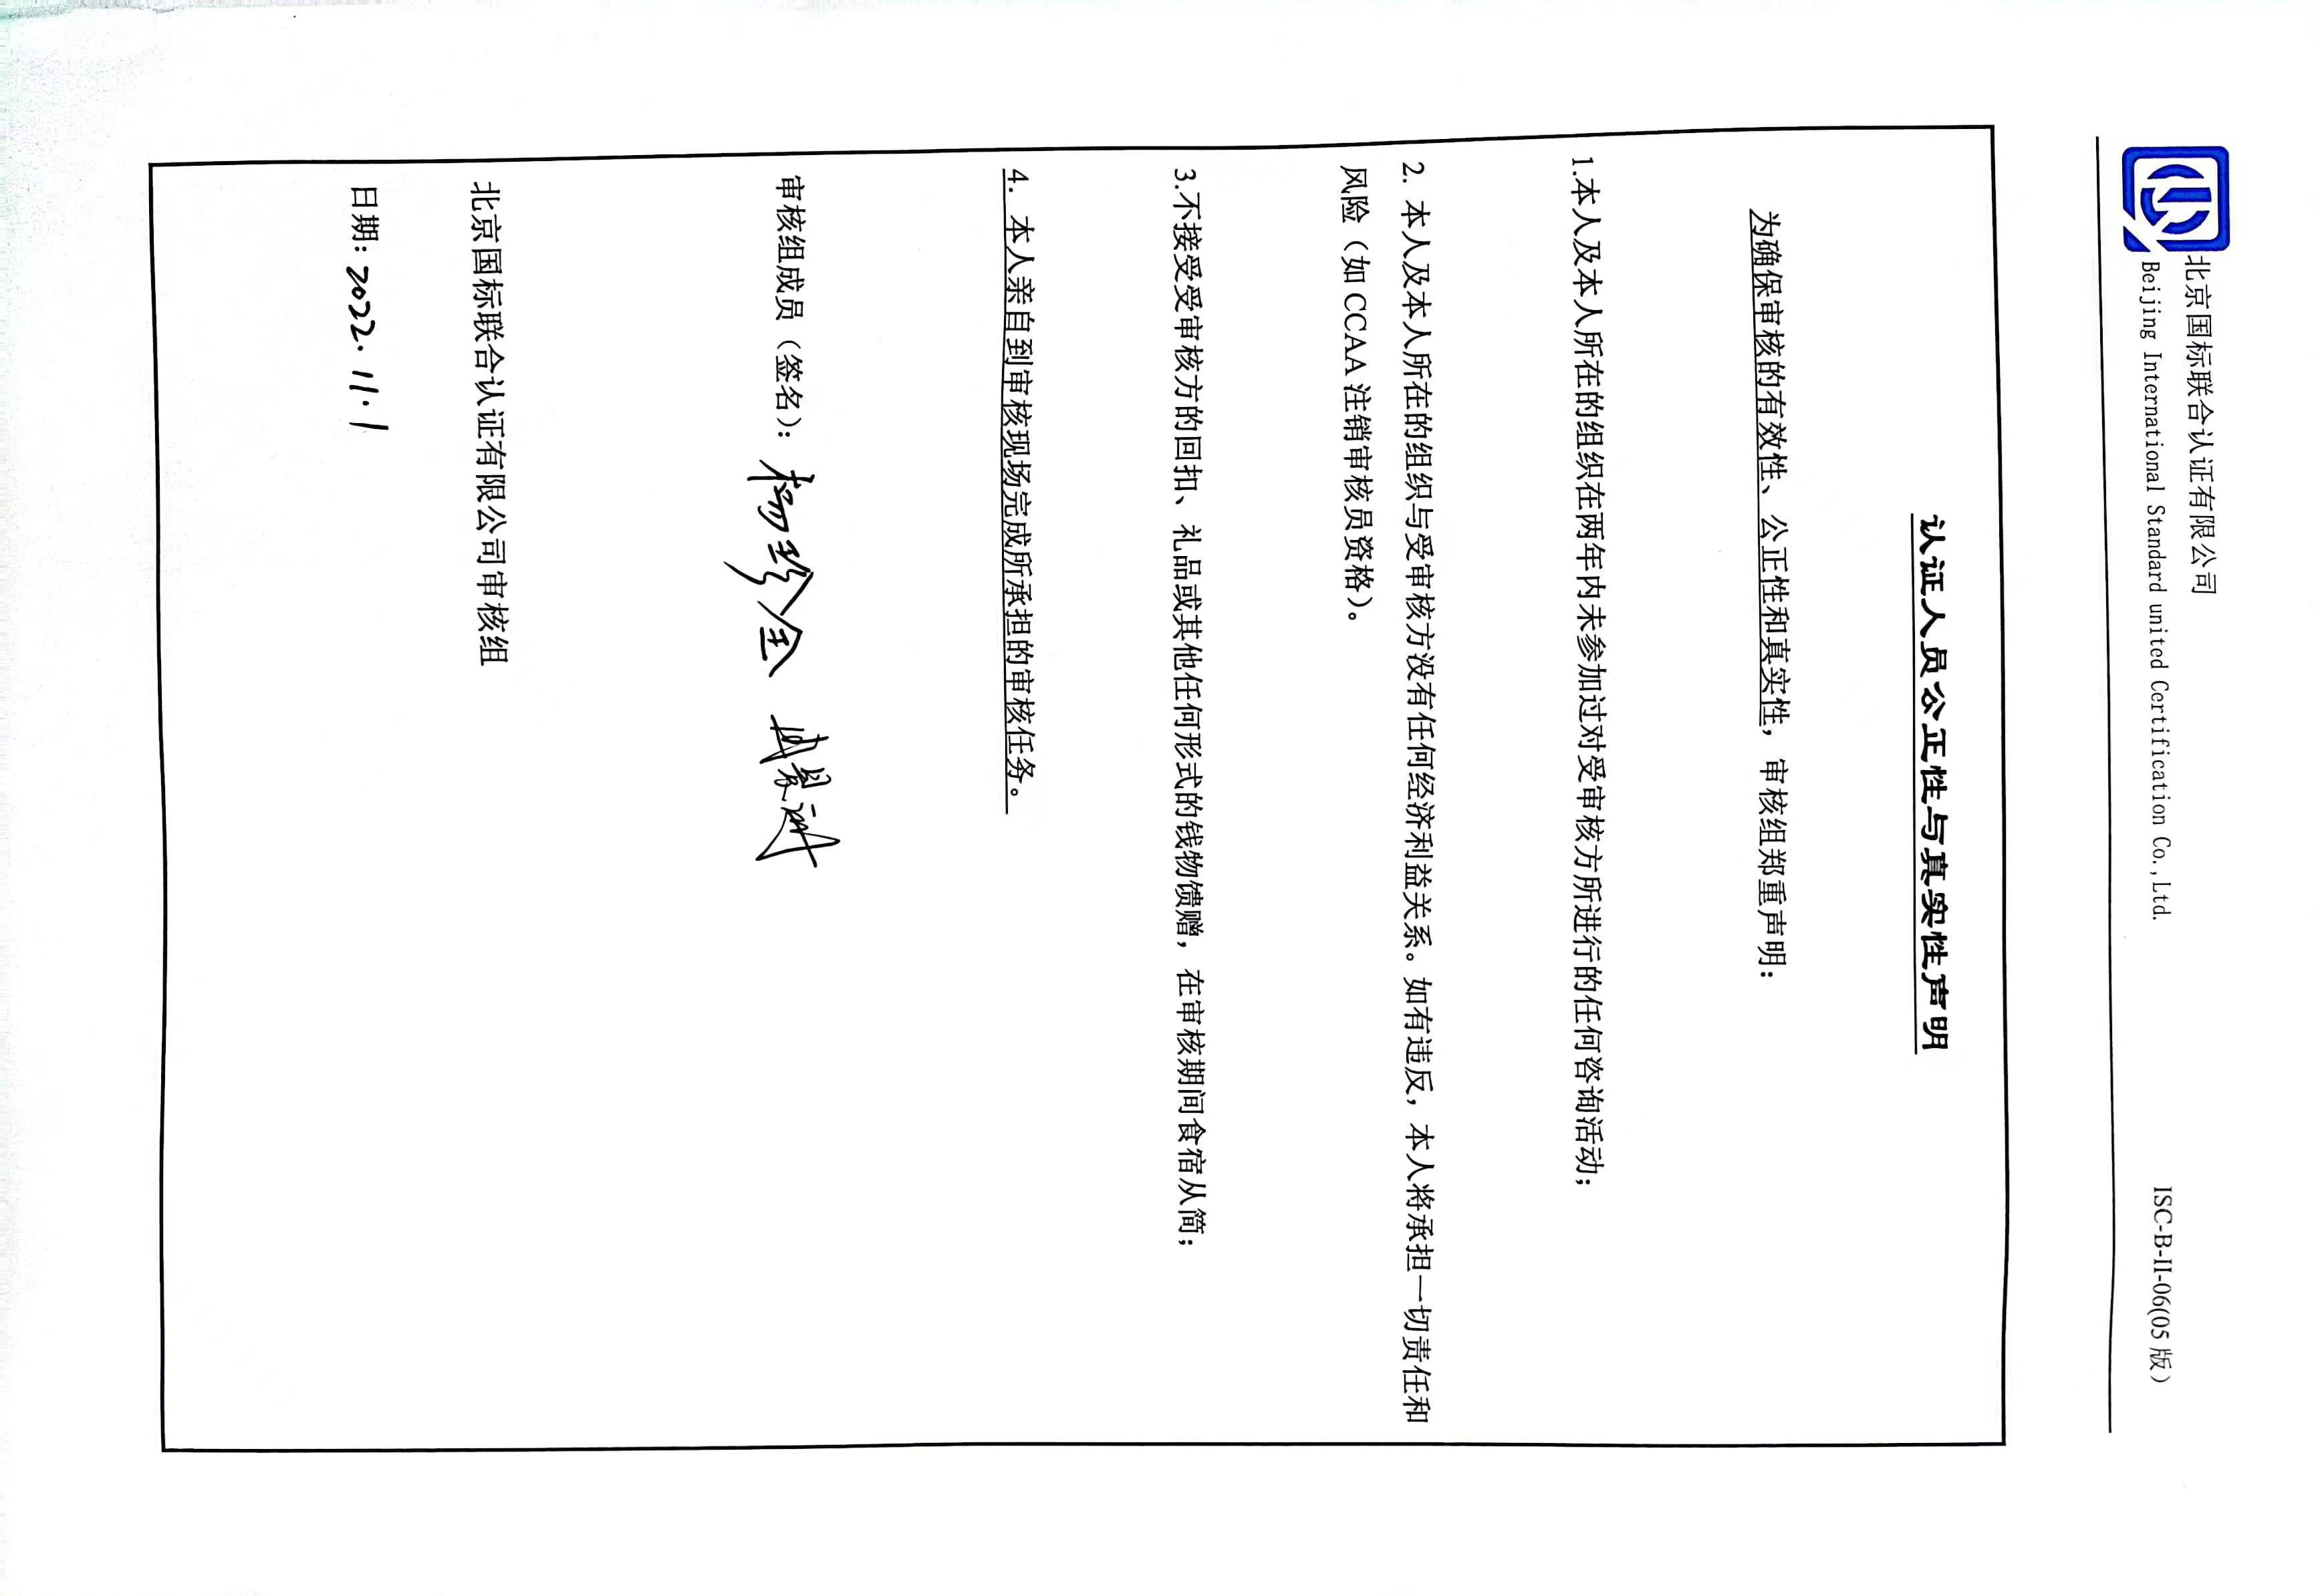 北京国标联合认证有限公司
Beijing International Standard united Certification Co.,Ltd. ISC-B-II-06(05版)
认证人员公正性与真实性声明
为确保审核的有效性、公正性和真实性，审核组郑重声明：
1.本人及本人所在的组织在两年内未参加过对受审核方所进行的任何咨询活动；
2. 本人及本人所在的组织与受审核方没有任何经济利益关系。如有违反，本人将承担一切责任和
风险（如CCAA注销审核员资格）。
3.不接受受审核方的回扣、礼品或其他任何形式的钱物馈赠，在审核期间食宿从简；
4. 本人亲自到审核现场完成所承担的审核任务。
审核组成员（签名）：杨珍全
北京国标联合认证有限公司审核组
日期：2022.11.1